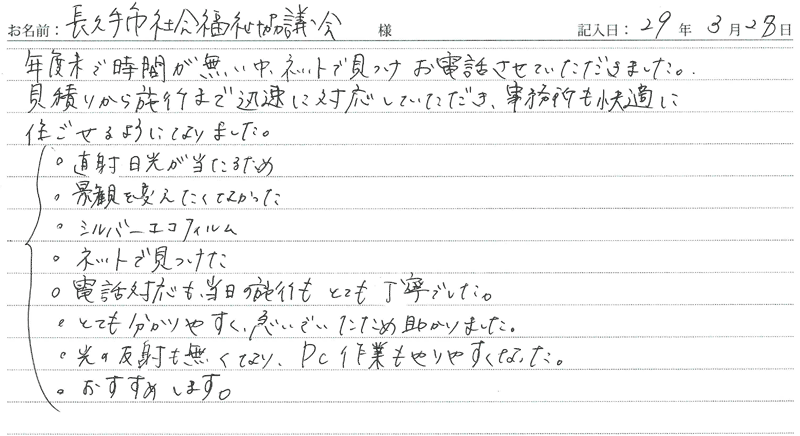 お名前：長久手市社会福祉協議会 様 記入日：29年3月28日
年度末で時間が無い中、ネットで見つけ お電話させていただきました。
見積りから施行まで迅速に対応していただき、事務所も快適に
任ごせるようになりました。
○ 直射日光が当たるため
○ 景観を変えたくなかった
○ シルバーエコフィルム
○ ネットで見つけた
○ 電話対応も、当日の施行も とても 丁寧でした。
○ とても分かりやすく、急いでいたため助かりました。
○ 光の反射も無くなり、PC作業もやりやすくなった。
○ おすすめします。